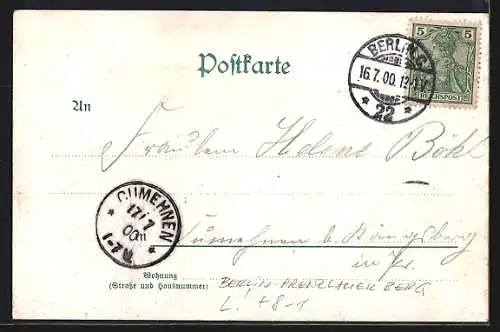 5 5
REICHSPOST
BERLIN
16.7.00.
* 22 *
Postkarte
An
Fräulein Helene Böhl
CUMEHNEN
17/7
00
1-7N
in Cumehnen b. Königsberg
in Pr.
Wohnung
(Straße und Hausnummer)
BERLIN-PRENZLAUER BERG
L! +8-1